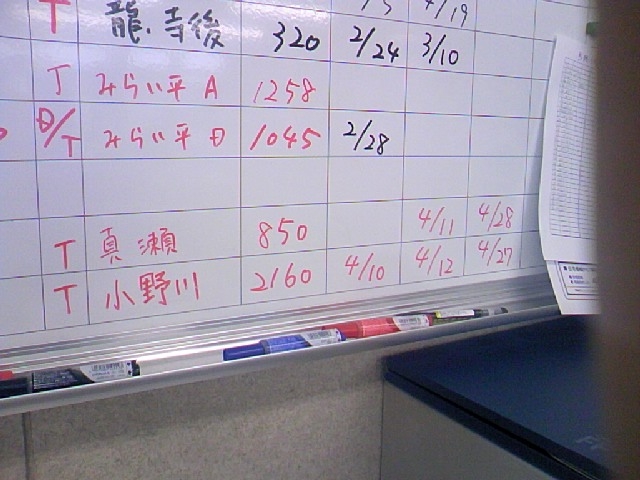 4/19
T 龍.寺後 320 2/24 3/10
T みらい平 A 1258
B/T みらい平 B 1045 2/28
T 真瀬 850 4/11 4/28
T 小野川 2160 4/10 4/12 4/27